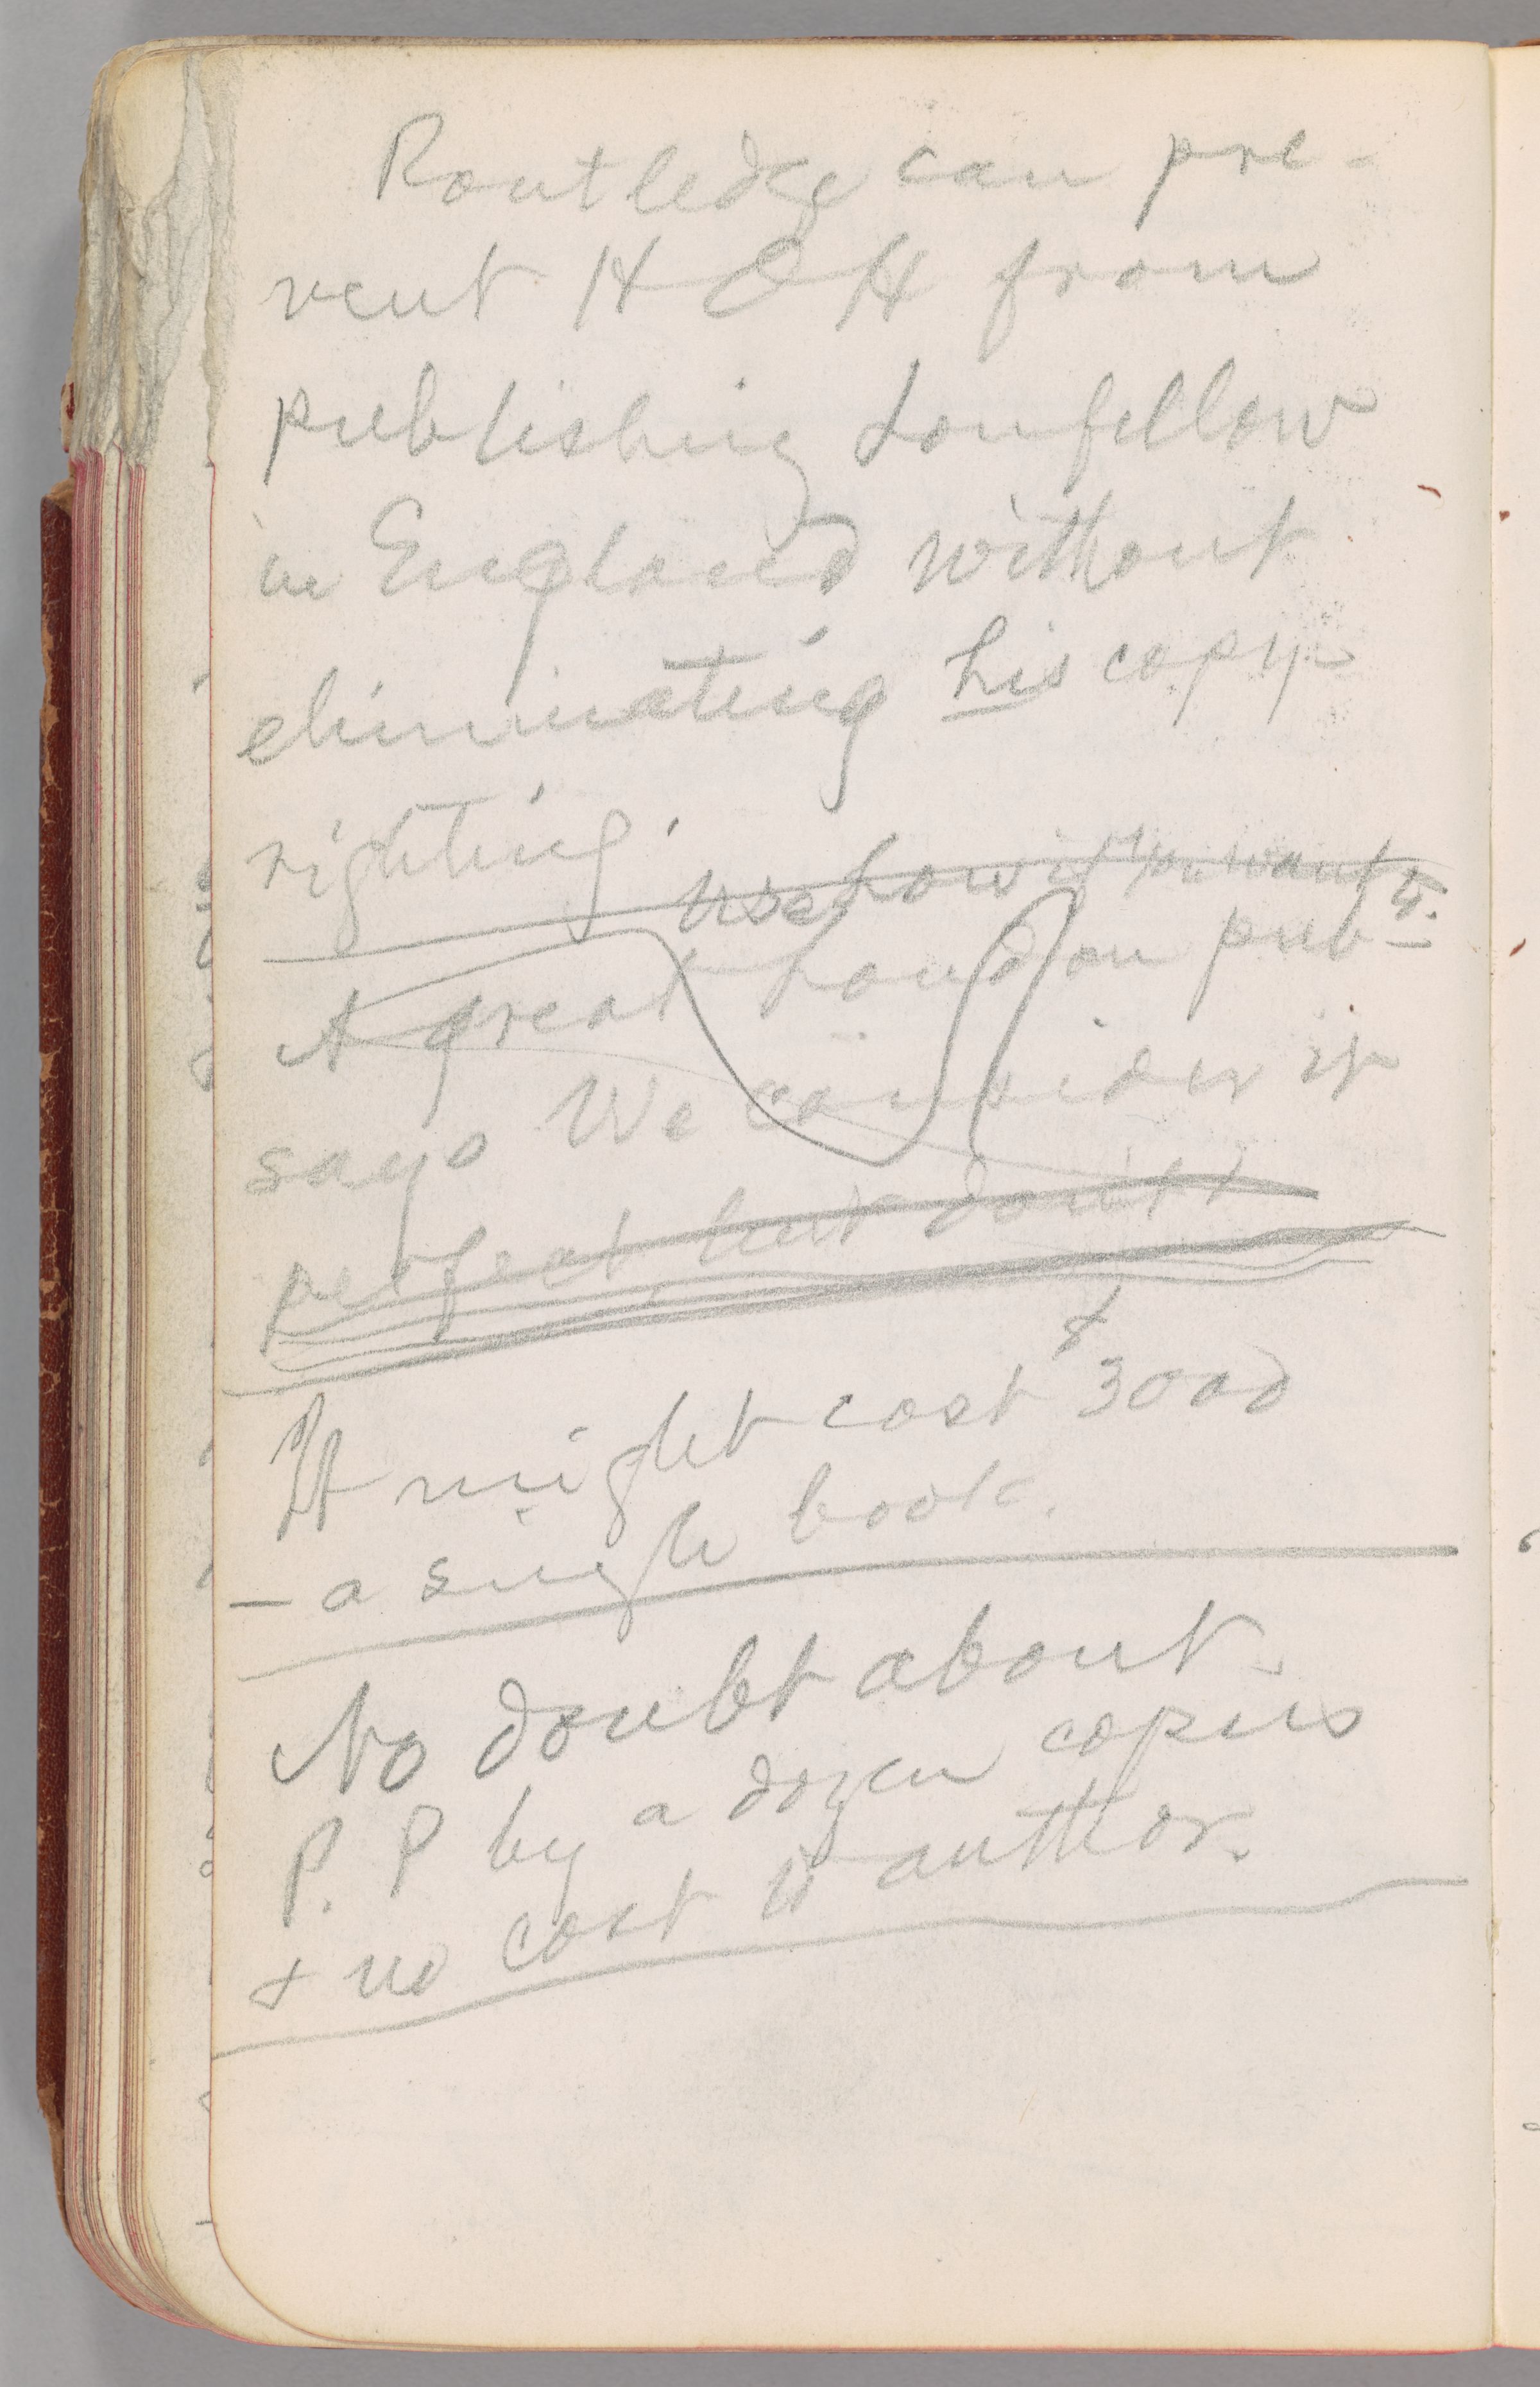 Routledge can pre-
vent H O H from
publishing Lonfellow
in England without
eliminating his copy-
righting.
Use how it you want
A great London pub
says We consider it
perfect, but don't
It might cost 3000
- a single book.
No doubt about
P. P by a dozen copies
+ no cost to author.